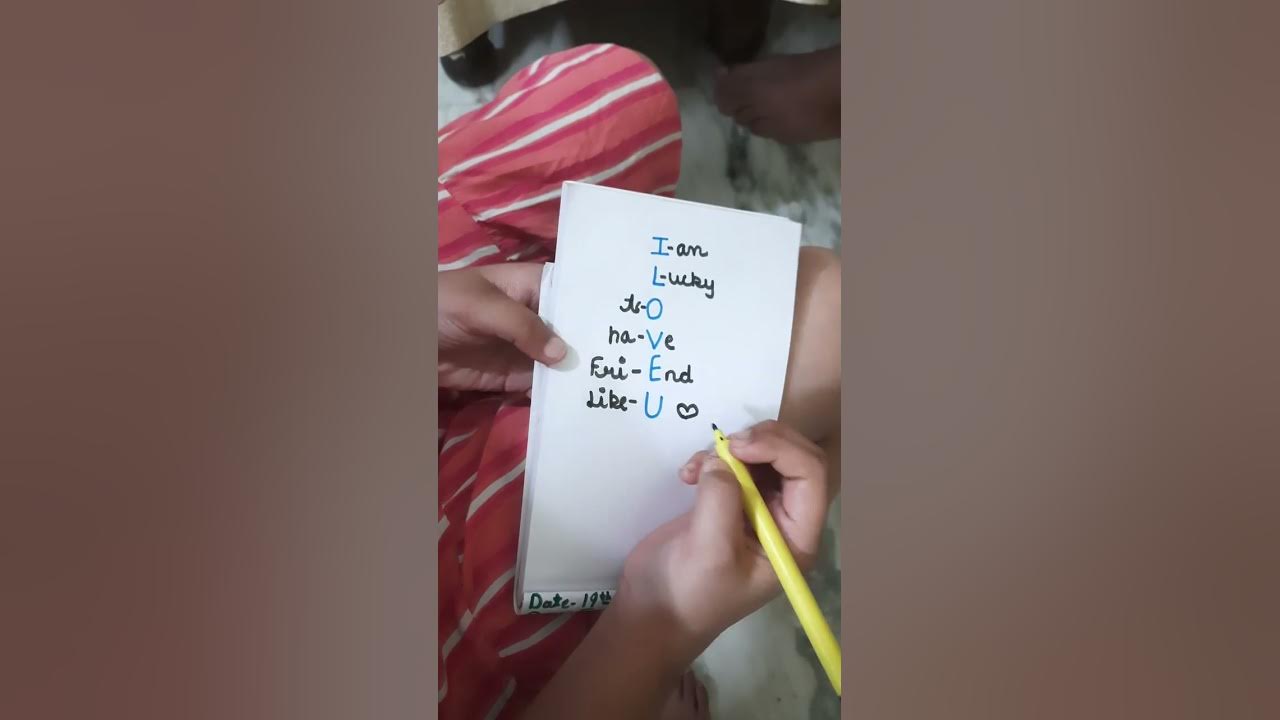 I-am
L-ucky
to-O
ha-Ve
Fri-End
Like-U
Date-19th